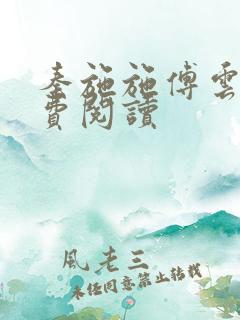 秦施施傅雲
費閱讀
風老三
未經同意禁止轉載